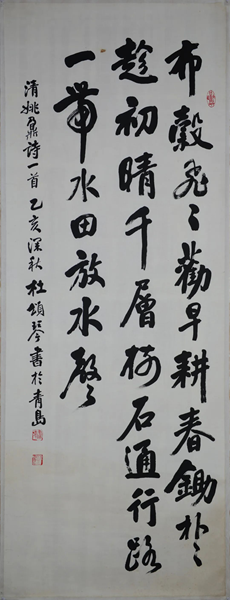 布穀飛〻勸早耕春鋤扑〻
趁初晴千層樹石通行路
一帶水田放水聲
清姚鼐詩一首 乙亥深秋 杜頌琴書於青島